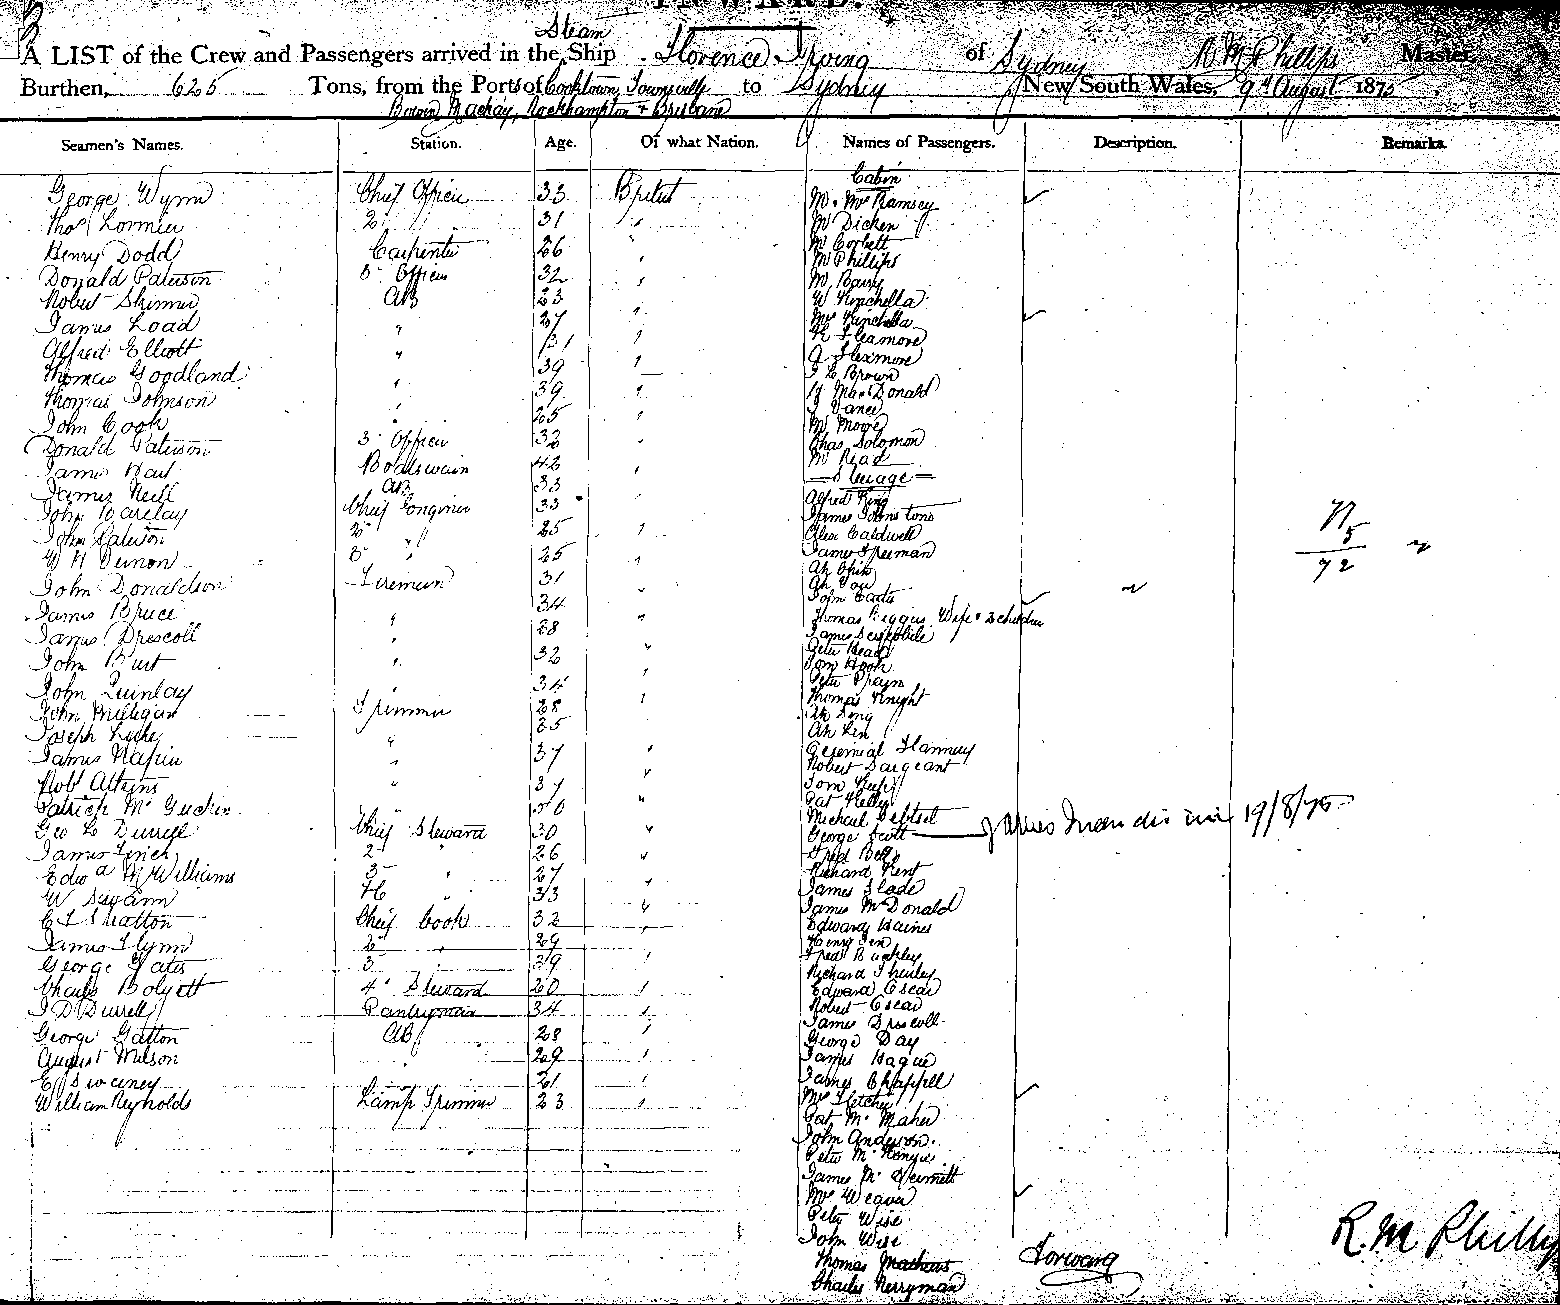 INWARD.
Steam
A LIST of the Crew and Passengers arrived in the Ship Florence Irving of Sydney R M Phillips Master,
Burthen, 625 Tons, from the Ports of Cooktown, Townsville to Sydney New South Wales, 9th August 1875
Bowen Mackay, Rockhampton + Brisbane
Seamen's Names. Station. Age. Of what Nation. Names of Passengers. Description. Remarks.
Cabin
George Wynn Chief Officer 33 British
Thos Lormier 2 31 "
Henry Dodd Carpenter 26 "
Donald Paterson 3 Officer 32 "
Robert Skinner AB 23 "
James Load " 27 "
Alfred Elliott " 31 "
Thomas Goodland " 39 "
Thomas Johnson " 39 "
John Cook " 25 "
Donald Paterson 3 Officer 32 "
James Hart Boatswain 42 "
James Neill AB 33
John Barclay Chief Engineer 33
John Paterson 2 " 25 "
W H Vernon 3 " 25 "
John Donaldson Fireman 31
James Bruce " 34 "
James Driscoll " 28 "
John Burt " 32 "
John Quinlay 34 "
John Milligan Trimmer 28 "
Joseph Locke " 25
James Napier " 37 "
Robt Atkins " 37 "
Patrick McGuckin 50 "
Geo L Durrell Chief Steward 30 "
James Finch 2 " 26 "
Edwd McWilliams 3 " 27 "
W Swann 4 33
C T Stratton Chief Cook 32 "
James Flynn 2 " 29 "
George Yates 3 39 "
Charles Bolyett 4 Steward 20 "
J D Durrell Pantryman 34 "
George Gatton AB 28 "
August Milson " 29 "
E Sweeney 21 "
William Reynolds Lamp Trimmer 23 "
Mr McRamsey
Mr Dicken
Mr Corbett
Mr Phillips
Mr Barry
W Kinchella
Mrs Kinchella
Flexmore
A Flexmore
J L Brown
H MacDonald
J Vance
Mr Mowe
Chas Solomon
Mr Read
Steerage
Alfred King
James Johnstone
Alex Caldwell
James Freeman
Ah Chin
Ah You
John Carter
Thomas Biggins Wife & 2 children
James
Peter Head
Tom Hook
Peter Prayn
Thomas Knight
Ah Sing
Ah Lin
Jeremial Flannery
Robert Sargeant
Tom
Pat Kelly
Michael
George Scott James 19/8/75
Fred Bell
Richard Kent
James Slade
James McDonald
Edward Haines
Henry
Fred Buckley
Richard
Edward Escar
Robert Escar
James Driscoll
George Day
James Hague
James Chappell
Mrs Fletcher
Pat McMaher
John Anderson
Peter McKenzie
James McDermott
Mrs Weaver
Peter Wise
John Wise
Thomas Mathews
Charles Merryman
Forward
77
5
72
R. M Phillips